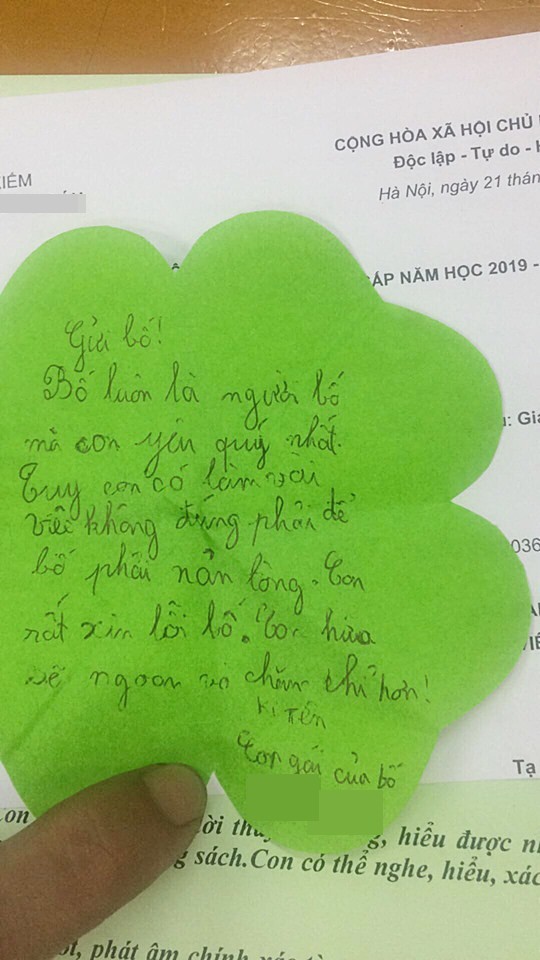 CỘNG HÒA XÃ HỘI CHỦ
Độc lập - Tự do -
IẾM
Hà Nội, ngày 21 thán
ẤP NĂM HỌC 2019 -
Gửi bố!
Bố luôn là người bố
mà con yêu quý nhất.
Tuy con có làm vài
việc không đứng phải để
bố phải nản lòng. Con
rất xin lỗi bố. Con hứa
sẽ ngoan và chăm chỉ hơn!
Kí tên
Con gái của bố
u: Gi
036
Tạ
on
ời th
g, hiểu được n
g sách.Con có thể nghe, hiểu, xác
ót, phát âm chính xác